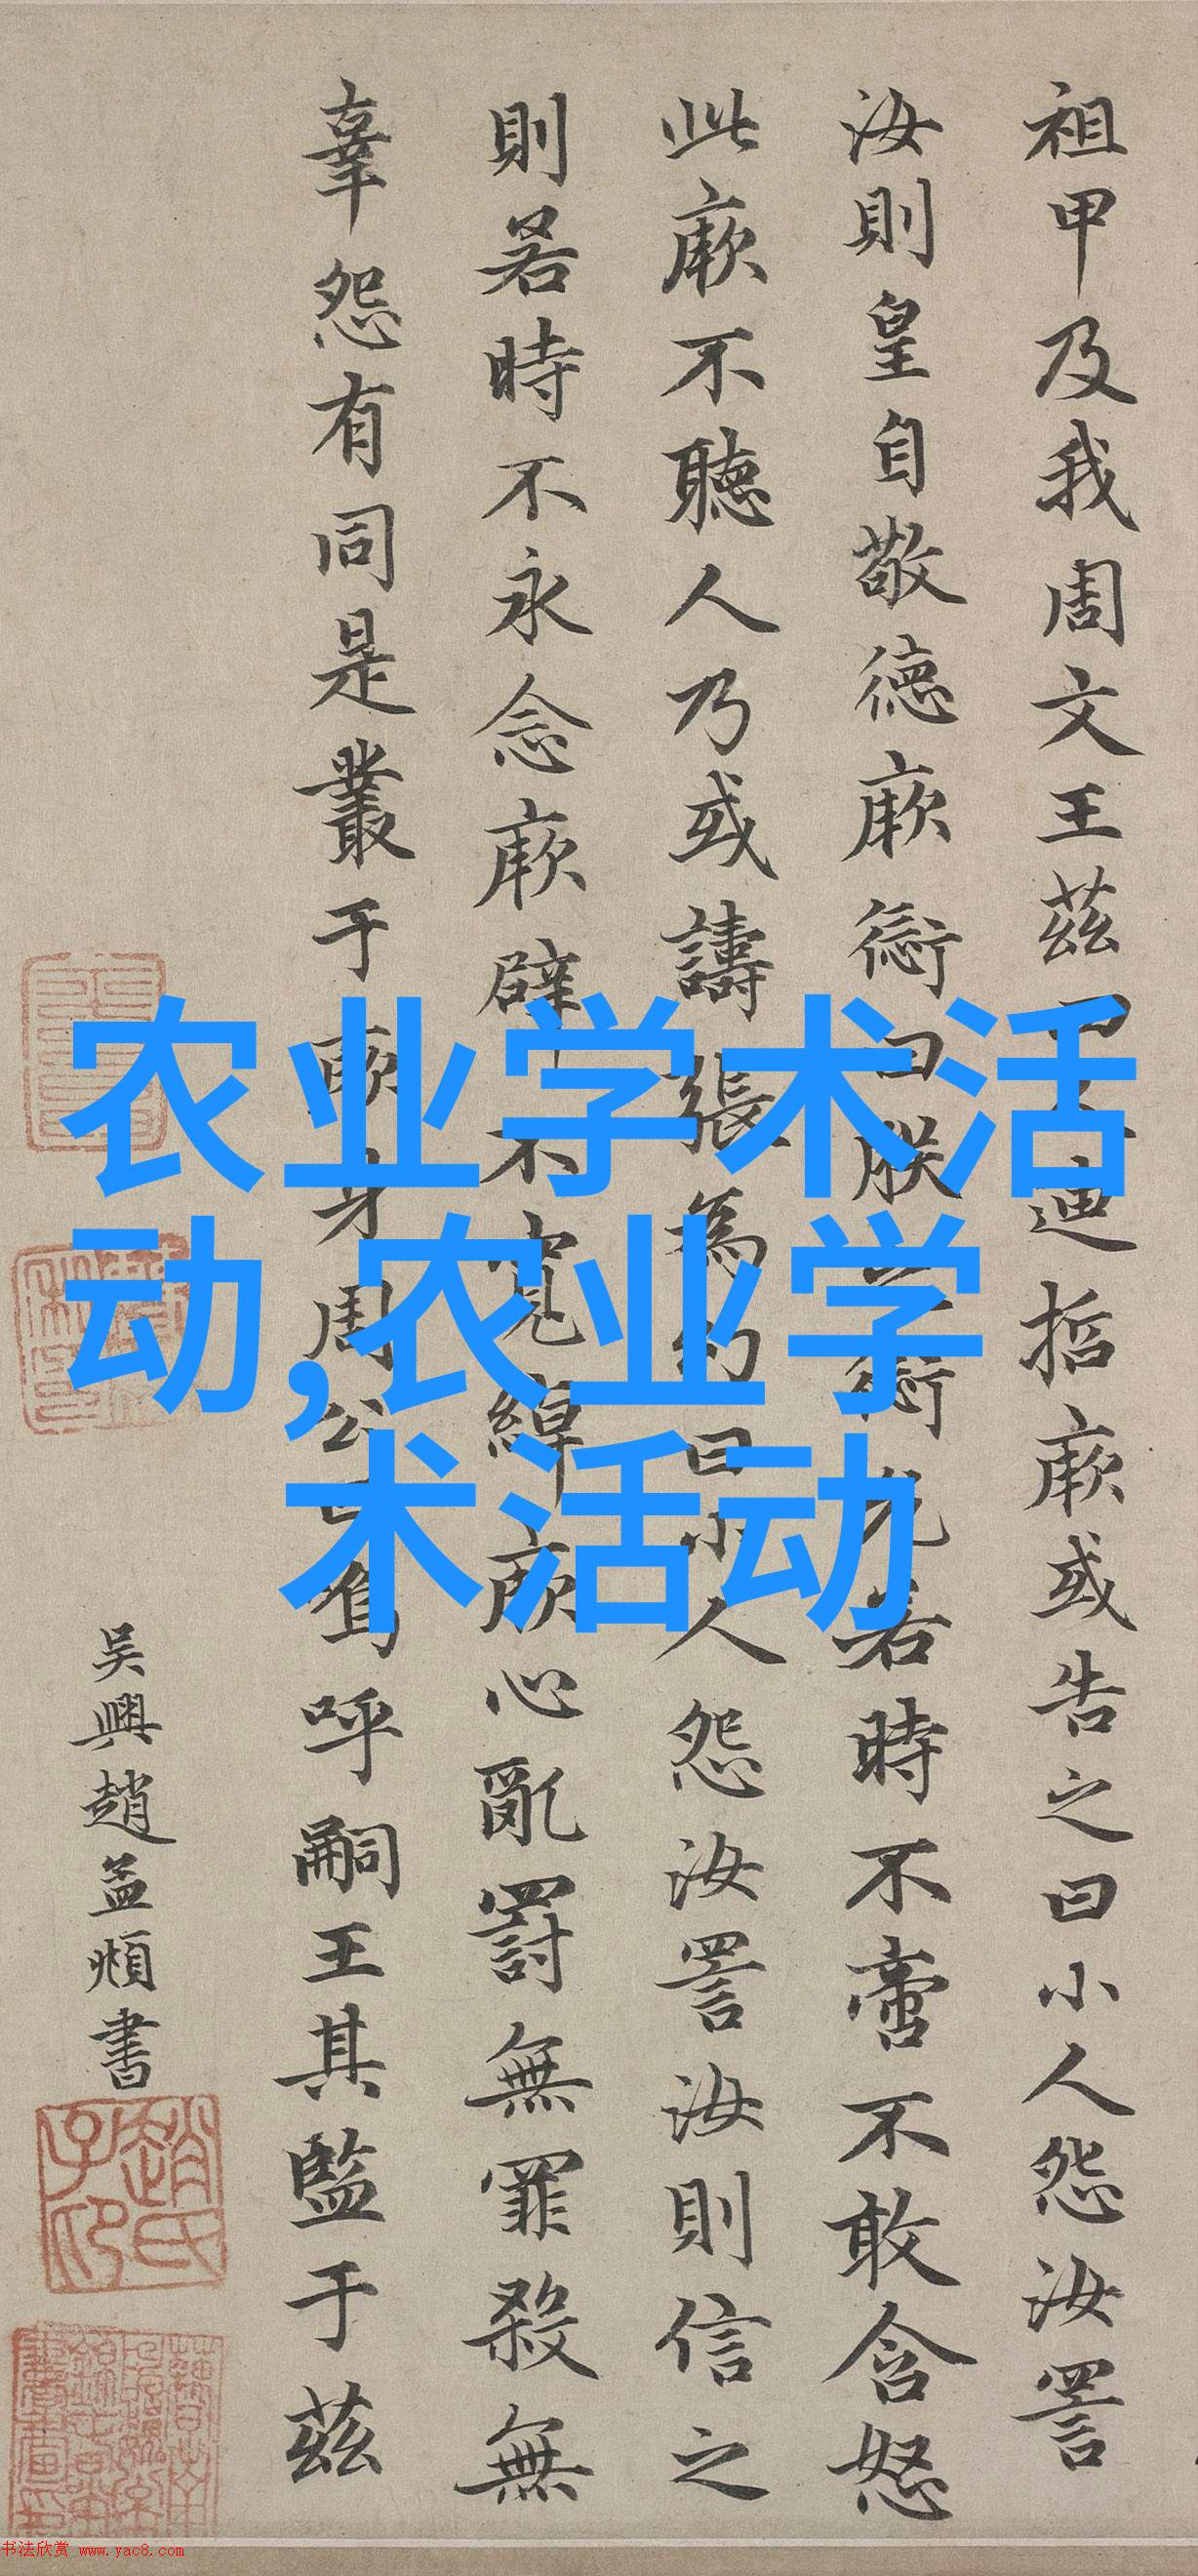 祖甲及我周文王茲四人迪哲厥或告之曰小人怨汝詈
汝則皇自敬德厥愆曰朕之愆允若時不啻不敢含怒
此厥不聽人乃或譸張為幻曰小人怨汝詈汝則信之
則若時不永念厥辟不寬綽厥心亂罰無罪殺無
辜怨有同是叢于厥身周公曰烏呼嗣王其監于茲
吳興趙孟頫書
趙氏子卬
农业学术活
动,农业学
术活动
书法欣赏 www.yac8.com